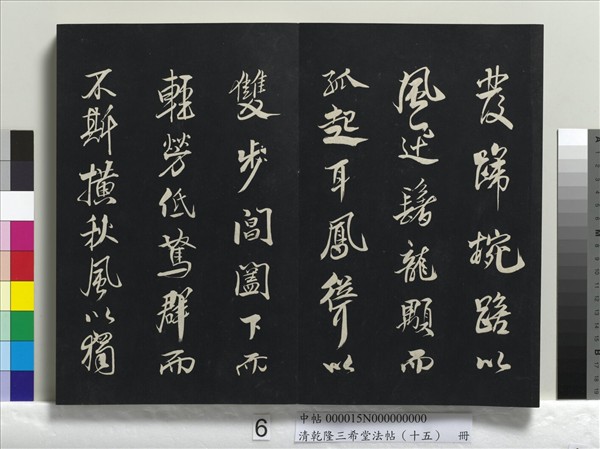 發蹄椀踣以
風迅鬐龍顒而
孤起耳鳳聳以
雙步閶闔下而
輕勞低駑群而
不嘶橫秋風以獨
6
中帖 000015N000000000
清乾隆三希堂法帖（十五） 冊